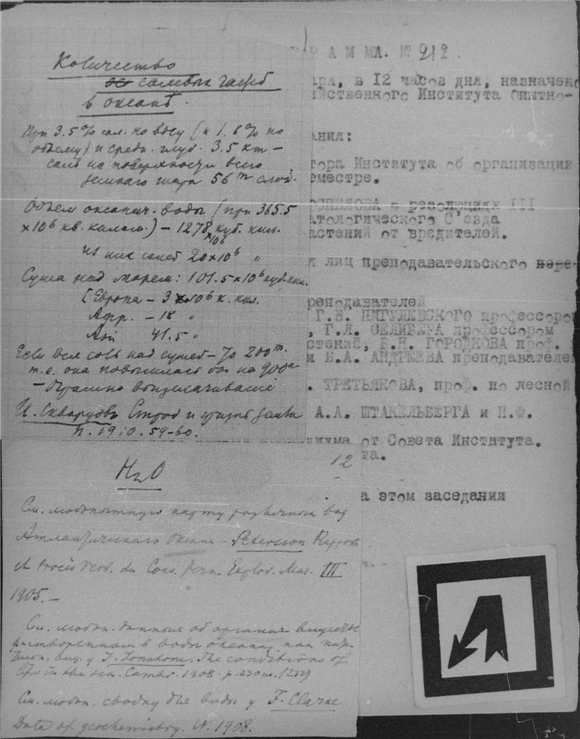 Количество
солевых частей
в океане.
При 3.5% сол. по весу (и 1.6% по
объему) и средн. глуб. 3.5 km —
солей на поверхности всего
земного шара 56 m слой.
Объем океанич. воды (при 365.5
×10⁶ кв. килом.) — 1278 куб. кил.
×10⁶
из них солей 20×10⁶ "
Суша над морем: 101.5×10⁶ куб. кил.
(Европа — 3×10⁶ к. кил.
Афр. — 18 "
Asi 41.5 "
Если вся соль над сушей — до 200 m.
т.е. она повысилась бы на
И. Скворцов Строй и
П. 1910. 59-60.
H₂O
12
См. карту различной вод
Атлантического Океана — Peterson Rapports
et Procès Verb. du Cons. Perm. Explor. Mer. III
1905. —
См. данные об органич. веществе
растворенном в воде океана
у J. Johnstone. The conditions of
life in the sea. Cambr. 1908. p.
См. сводку для воды у F. Clarke
Data of geochemistry. W. 1908.
РАММА. № 212
ря, в 12 часов дня, назначено
ственного Института Опытно-
ания:
тора Института об организации
еместре.
в резолюциях III
атологического С'езда
астений от вредителей.
я лиц преподавательского пере-
реподавателей
Г.В. НИГУЛЕВСКОГО профессором
, Г.Л. СЕЛИБЕРА профессором
стений, Б.Н. ГОРОДКОВА проф.
и Е.А. АНДРЕЕВА преподавателем
. ТРЕТЬЯКОВА, проф. по лесной
А.А. ШТАКЕЛЬБЕРГА и Н.Ф.
иума от Совета Института.
та.
а этом заседании